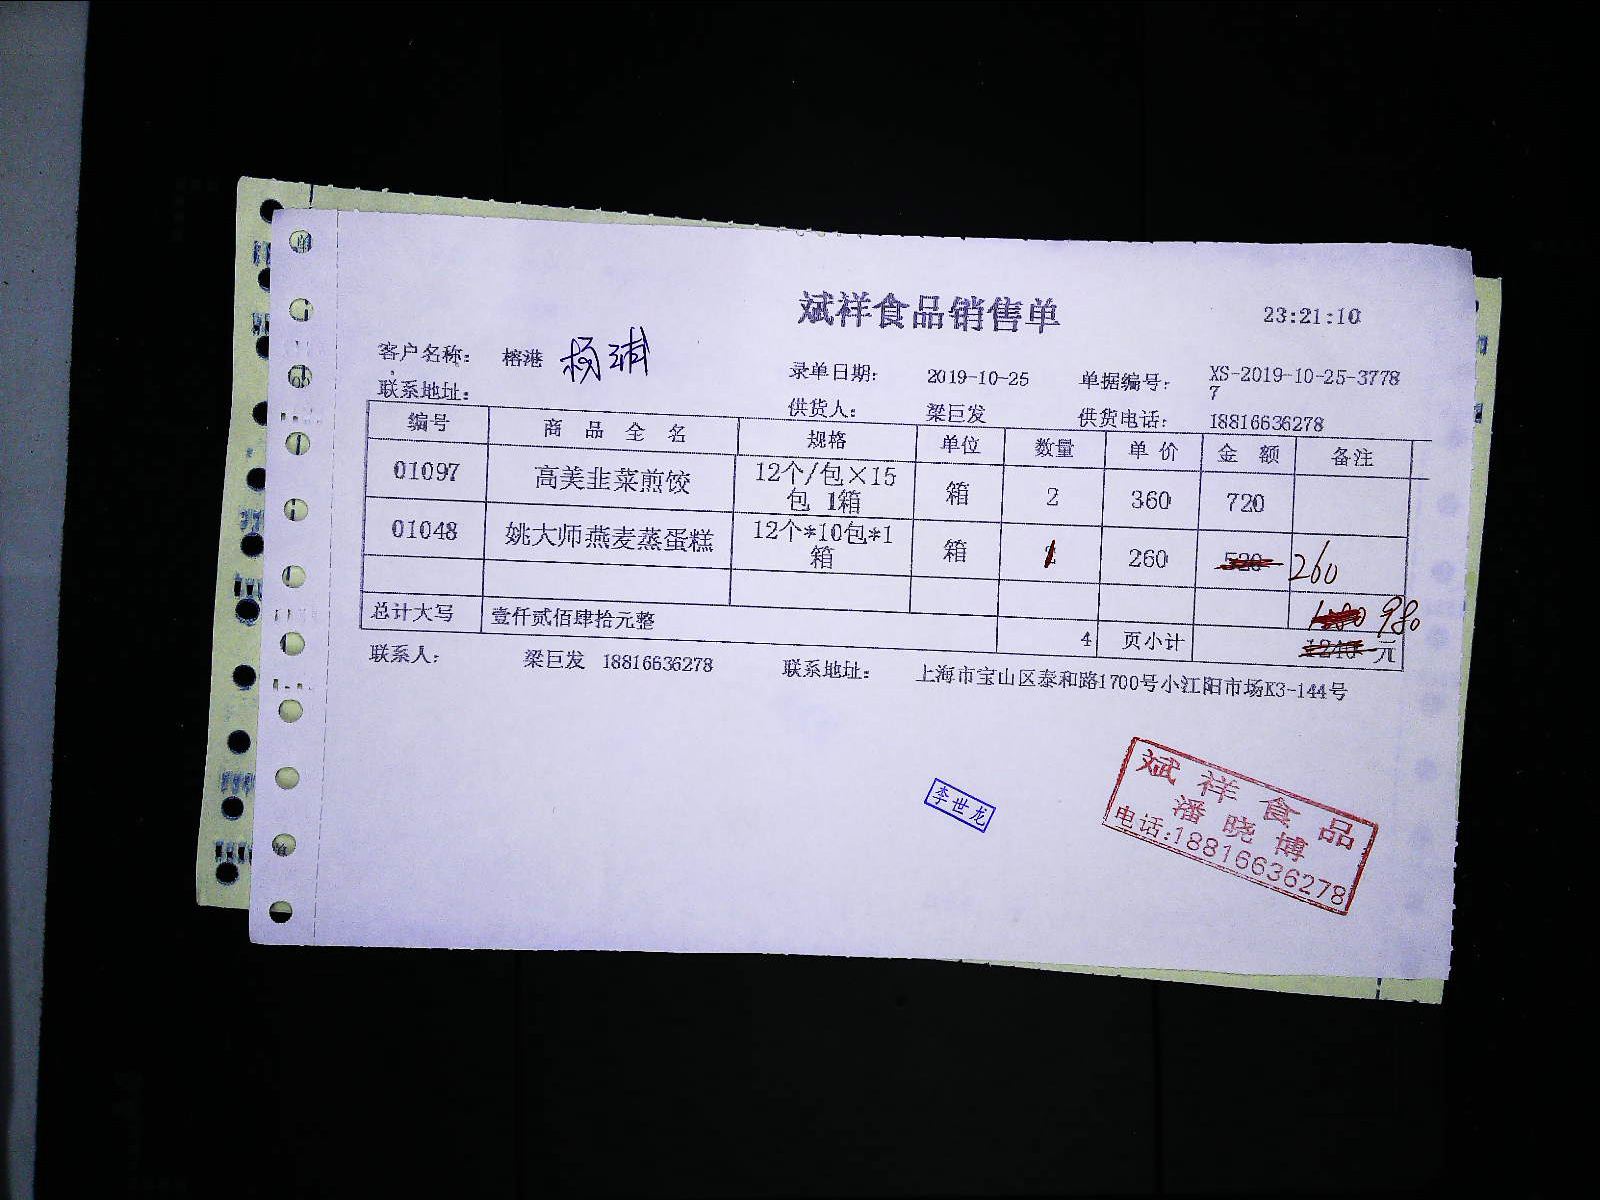 斌祥食品销售单
23:21:10
客户名称： 榕港 杨浦
录单日期： 2019-10-25 单据编号： XS-2019-10-25-3778
7
联系地址：
供货人： 梁巨发 供货电话： 18816636278
编号 商品全名 规格 单位 数量 单价 金额 备注
01097 高美韭菜煎饺 12个/包×15
包 1箱 箱 2 360 720
01048 姚大师燕麦蒸蛋糕 12个*10包*1
箱 箱 1 260 520 260
980
总计大写 壹仟贰佰肆拾元整 4 页小计 1240 元
联系人： 梁巨发 18816636278 联系地址： 上海市宝山区泰和路1700号小江阳市场K3-144号
李世龙
斌祥食品
潘晓博
电话:18816636278